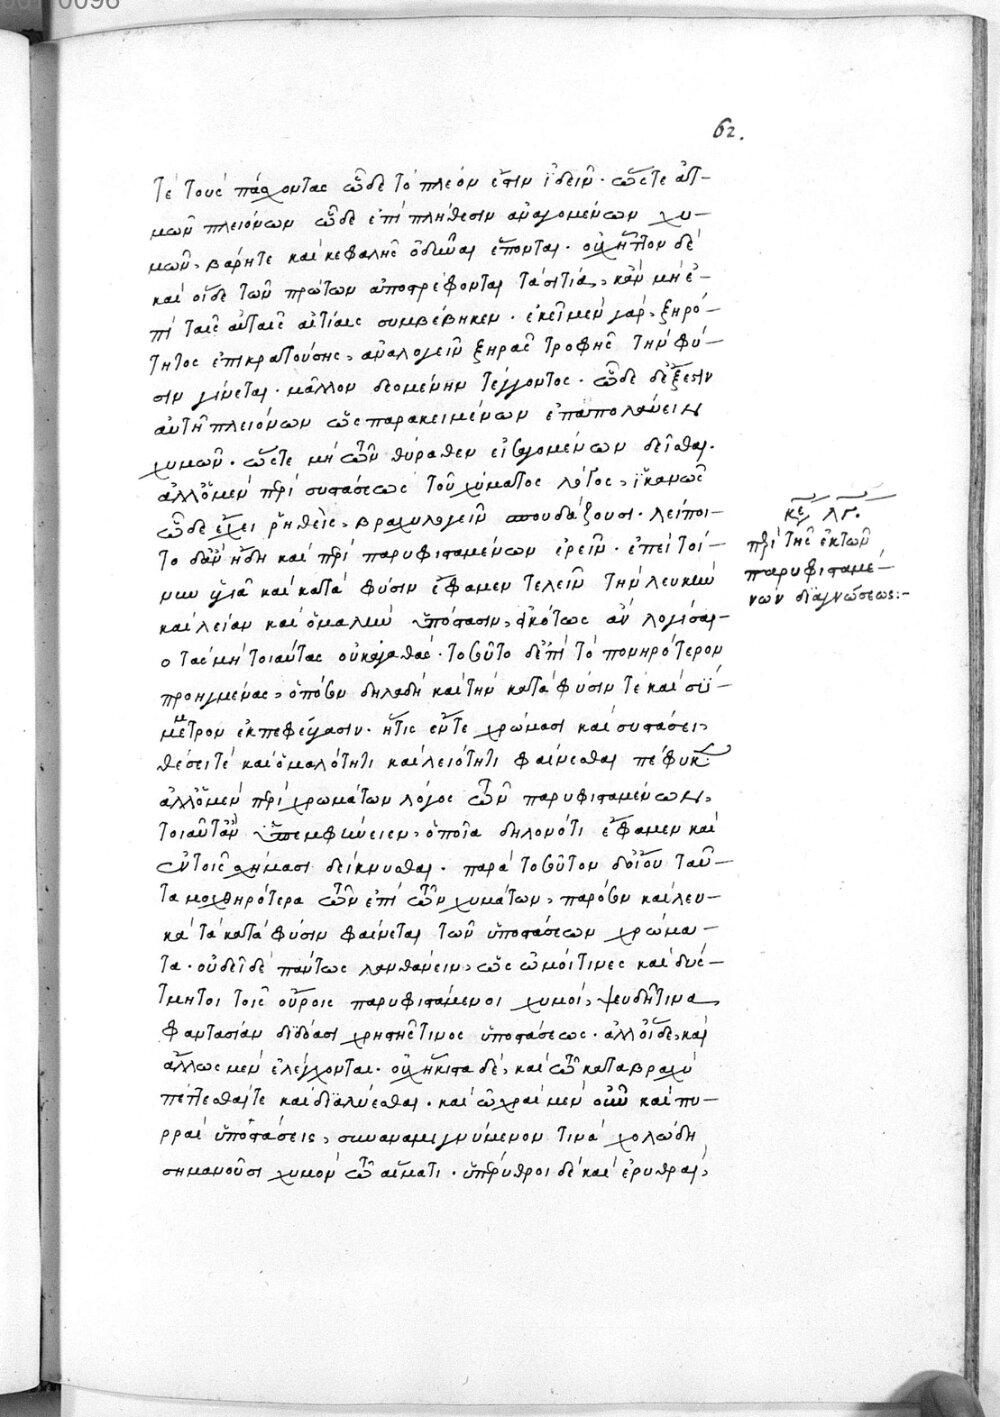 62.
τὲ τοὺς πάσχοντας ὧδε τὸ πλέον ἔστιν ἰδεῖν. ὥστε ἀτ-
μῶν πλειόνων ὧδε ἐπὶ πλήθεσιν ἀναγομένων χυ-
μῶν, βάρητε καὶ κεφαλῆς ὀδύναι ἕπονται. οὐχ ἧττον δὲ
καὶ οἵδε τῶν πρώτων ἀποστρέφονται τὰ σιτία, κἂν μὴ ἐ-
πὶ ταῖς αὐταῖς αἰτίαις συμβέβηκεν. ἐκεῖ μὲν γὰρ, ξηρό-
τητος ἐπικρατούσης, ἀναλογεῖν ξηρᾶς τροφῆς τὴν φύ-
σιν γίνεται. μᾶλλον δεομένην τέγγοντος. ὧδε δέξεσιν
αὐτῇ πλειόνων ὡς παρακειμένων ἐπιπολάνειν
χυμῶν. ὥστε μὴ τῶν θύραθεν εἰσαγομένων δεῖσθαι.
ἀλλ' ὁ μὲν περὶ συστάσεως τοῦ χύματος λόγος, ἱκανῶς
ὧδε ἔχει ῥηθεὶς, βραχυλογεῖν σπουδάζουσι. λείποι-
το δ' ἂν ἤδη καὶ περὶ παρυφισταμένων ἐρεῖν. ἐπεὶ τοί-
νυν ὑγιᾶ καὶ κατὰ φύσιν ἔφαμεν τελεῖν τὴν λευκὴν
καὶ λείαν καὶ ὁμαλὴν ὑπόστασιν, εἰκότως ἂν λογίσαι-
ο τὰς μὴ τοιαύτας οὐκ ἀγαθάς. τοσοῦτο δ' ἐπὶ τὸ πονηρότερον
προηγμένας, ὁπόσον δηλαδὴ καὶ τὴν κατὰ φύσιν τὲ καὶ σύ-
μμετρον ἐκπεφεύγασιν. ἥτις ἔντε χρώμασι καὶ συστάσει,
θέσει τὲ καὶ ὁμαλότητι καὶ λειότητι φαίνεσθαι πέφυκε
ἀλλ' ὁ μὲν περὶ χρωμάτων λόγος τῶν παρυφισταμένων,
τοιαῦτ' ἂν ὑπεμφαίνειεν, ὁποῖα δηλονότι ἔφαμεν καὶ
ἐν τοῖς χύμασι δείκνυσθαι. παρὰ τοσοῦτον δ' οἷον ταῦ-
τα μοχθηρότερα τῶν ἐπὶ τῶν χυμάτων, παρόσον καὶ λευ-
κὰ τὰ κατὰ φύσιν φαίνεται τῶν ὑποστάσεων χρώμα-
τα. οὐ δεῖ δὲ πάντως λανθάνειν, ὡς ὠμοί τινες καὶ δυσ-
τμητοι τοῖς οὔροις παρυφιστάμενοι χυμοὶ, ψευδῆ τινα
φαντασίαν διδόασι χρηστῆς τινος ὑποστάσεως. ἀλλ' οἵδε, καὶ
ἄλλως μὲν ἐλέγχονται. οὐχ ἥκιστα δὲ, καὶ τῷ κατὰ βραχὺ
πέττεσθαί τε καὶ διαλύεσθαι. καὶ ὠχραὶ μὲν οὖν καὶ πυ-
ρραὶ ὑποστάσεις, συναναμιγνύμενον τινὰ χολώδη
σημανοῦσι χυμὸν τῷ αἵματι. ὑπέρυθροι δὲ καὶ ἐρυθραὶ,
κε. λγ.
περὶ τῆς ἐκ τῶν
παρυφισταμέ-
νων διαγνώσεως:-